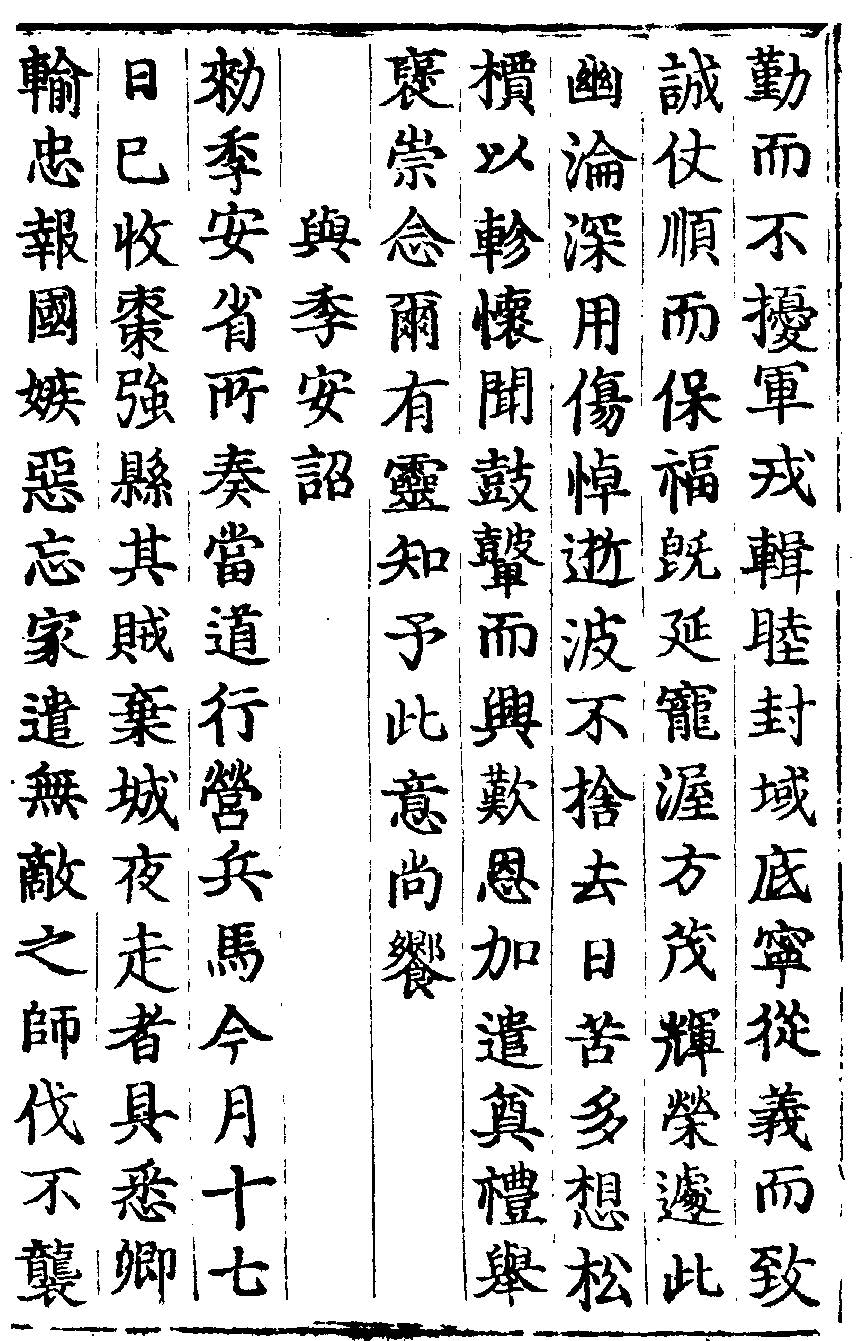 勤而不擾軍戎輯睦封域底寧從義而致
誠仗順而保福旣延寵渥方茂輝榮遽此
幽淪深用傷悼逝波不捨去日苦多想松
檟以軫懷聞鼓鼙而興歎恩加遣奠禮舉
褒崇念爾有靈知予此意尚饗
與季安詔
勑季安省所奏當道行營兵馬今月十七
日已收棗強縣其賊棄城夜走者具悉卿
輸忠報國嫉惡忘家遣無敵之師伐不襲